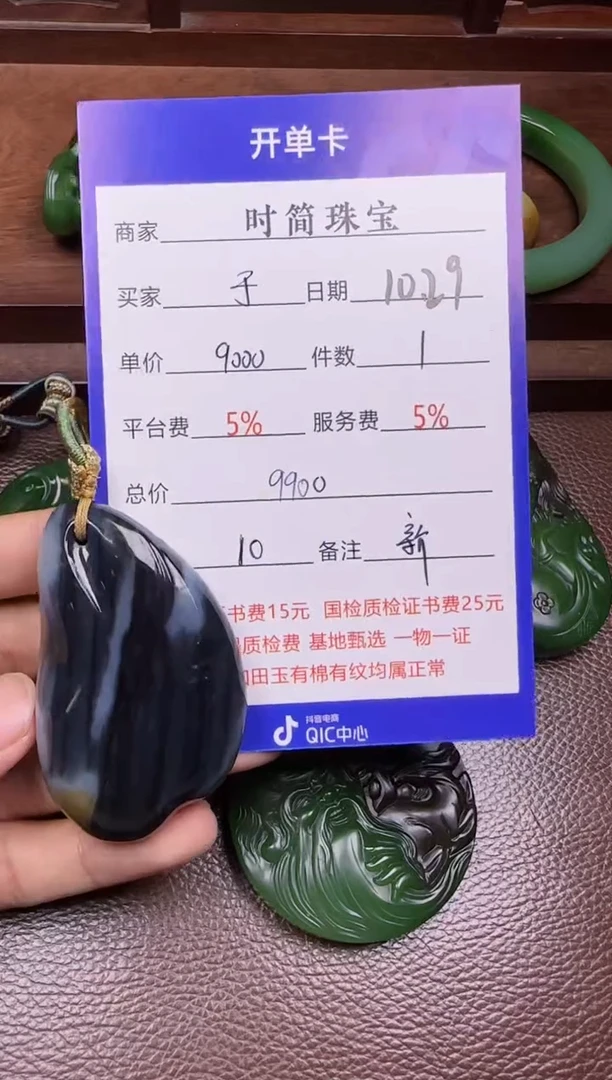 开单卡
商家 时简珠宝
买家 于 日期 10.29
单价 9000 件数 1
平台费 5% 服务费 5%
总价 9900
10 备注 新
书费15元 国检质检证书费25元
质检费 基地甄选 一物一证
田玉有棉有纹均属正常
抖音电商
QIC中心